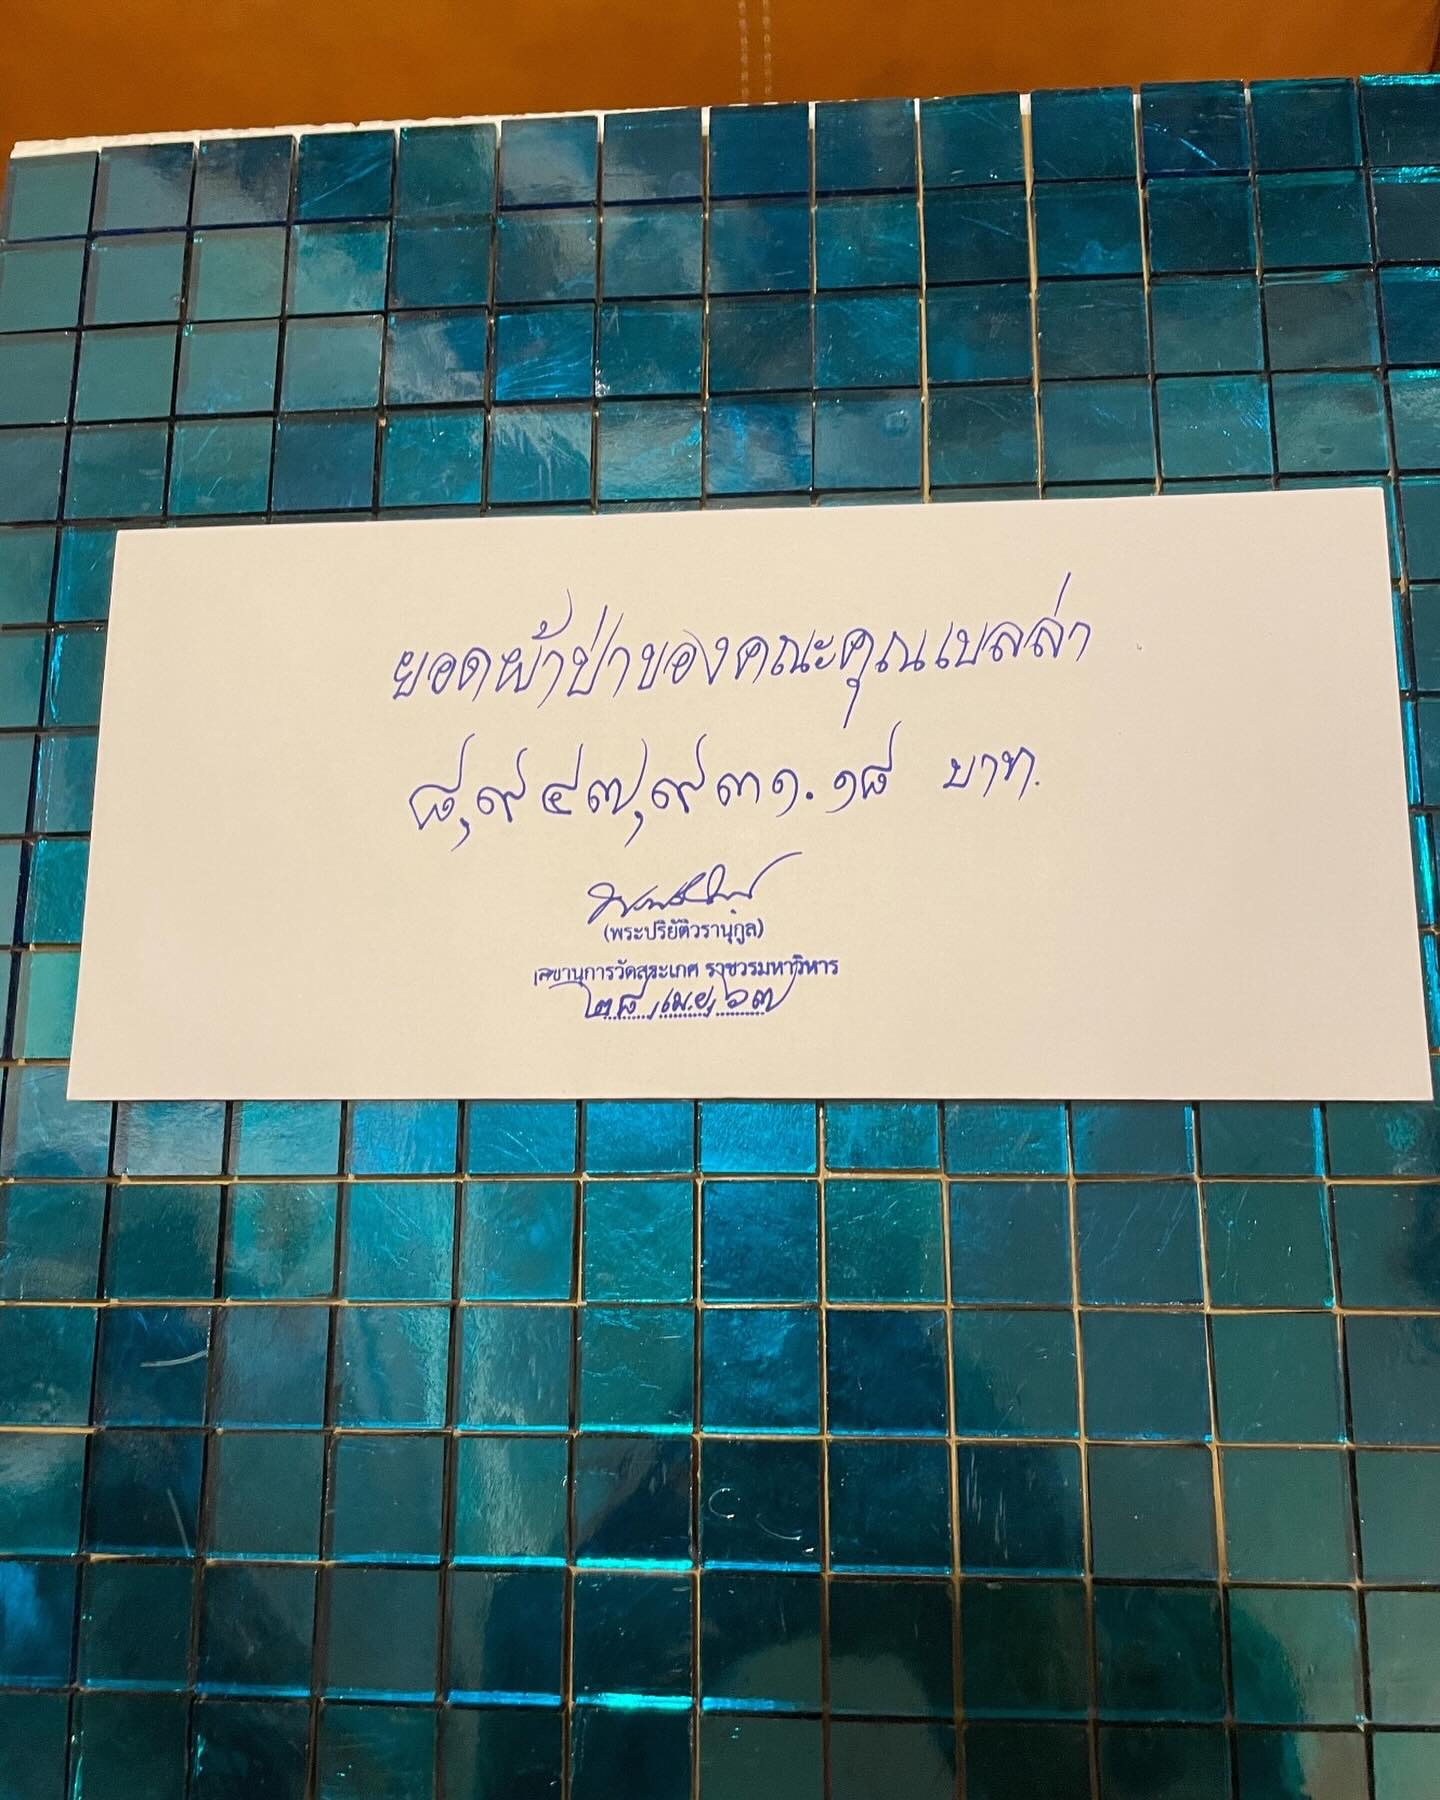 ยอดผ้าป่าของคณะคุณเบลล่า
๘,๙๔๗,๙๓๑.๑๘ บาท.
(พระปริยัติวรานุกูล)
เลขานุการวัดสระเกศ ราชวรมหาวิหาร
๒๘ เม.ย. ๖๗